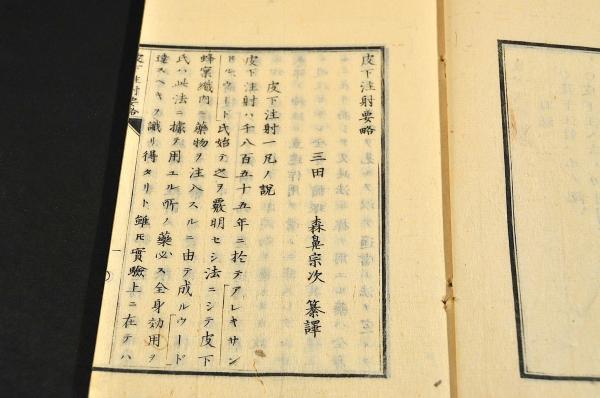 皮下注射要略
三田 森鼻宗次 纂譯
皮下注射一凡ノ説
皮下注射ハ千八百五十五年ニ於テアレキサン
ドル、ウード氏始テ之ヲ發明セシ法ニシテ皮下
蜂窠織内ニ藥物ヲ注入スルニ由テ成ルウード
氏ハ此法ニ據テ用ユル所ノ藥必ス全身効用ヲ
達スベキヲ識リ得タリト雖モ實驗上ニ在テハ
皮下注射要略
一